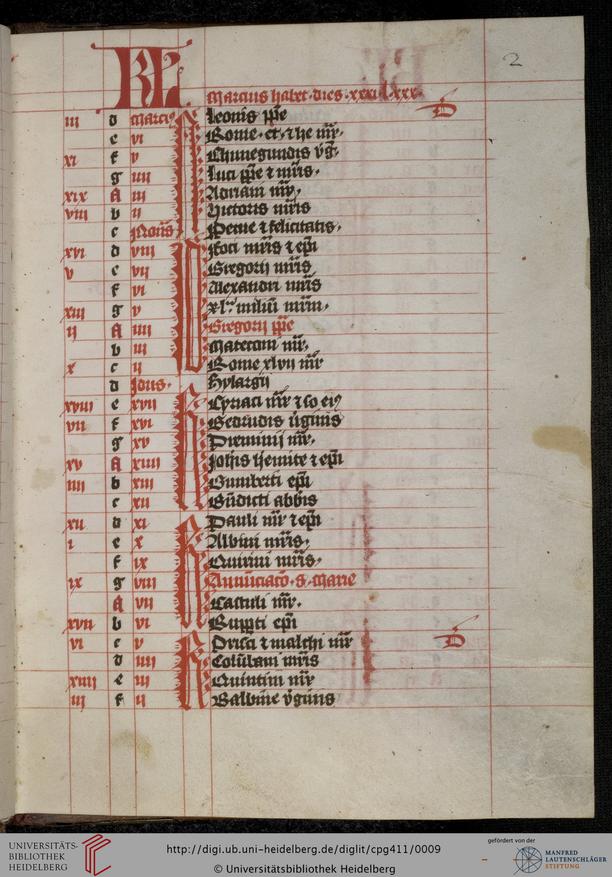 2
KL Marcius habet dies xxxi l xxx
iii d Marcius Leonis ppe
e vi Rome et
xi f v Chunegundis vg
g iiii Luci ppe et mris
xix A iii Adriani mr
viii b ii Victoris mris
c Nonas Petue et felicitatis
xvi d viii Foci mris et epi
v e vii Gregorij mris
f vi Alexandri mris
xiii g v xl militu mrm
ii A iiii Gregorij ppe
b iii Macedoni mr
x c ii Rome xlvii mr
d Idus Hylargij
xviii e xvii Cyriaci mr et so eius
vii f xvi Gedrudis virginis
g xv Pigmenij mr
xv A xiiii Johis hemite et epi
iiii b xiii Gumberti epi
c xii Bndicti abbis
xii d xi Pauli mr et epi
i e x Albini mris
f ix Quirini mris
ix g viii Annunciato s Marie
A vii Castuli mr
xvii b vi Ruppti epi
vi c v Prisci et malchi mr D
d iiii Columbani mris
xiiii e iii Quintini mr
iii f ii Balbine virginis
UNIVERSITÄTS-
BIBLIOTHEK
HEIDELBERG
http://digi.ub.uni-heidelberg.de/diglit/cpg411/0009
© Universitätsbibliothek Heidelberg
gefördert von der
MANFRED
LAUTENSCHLÄGER
STIFTUNG